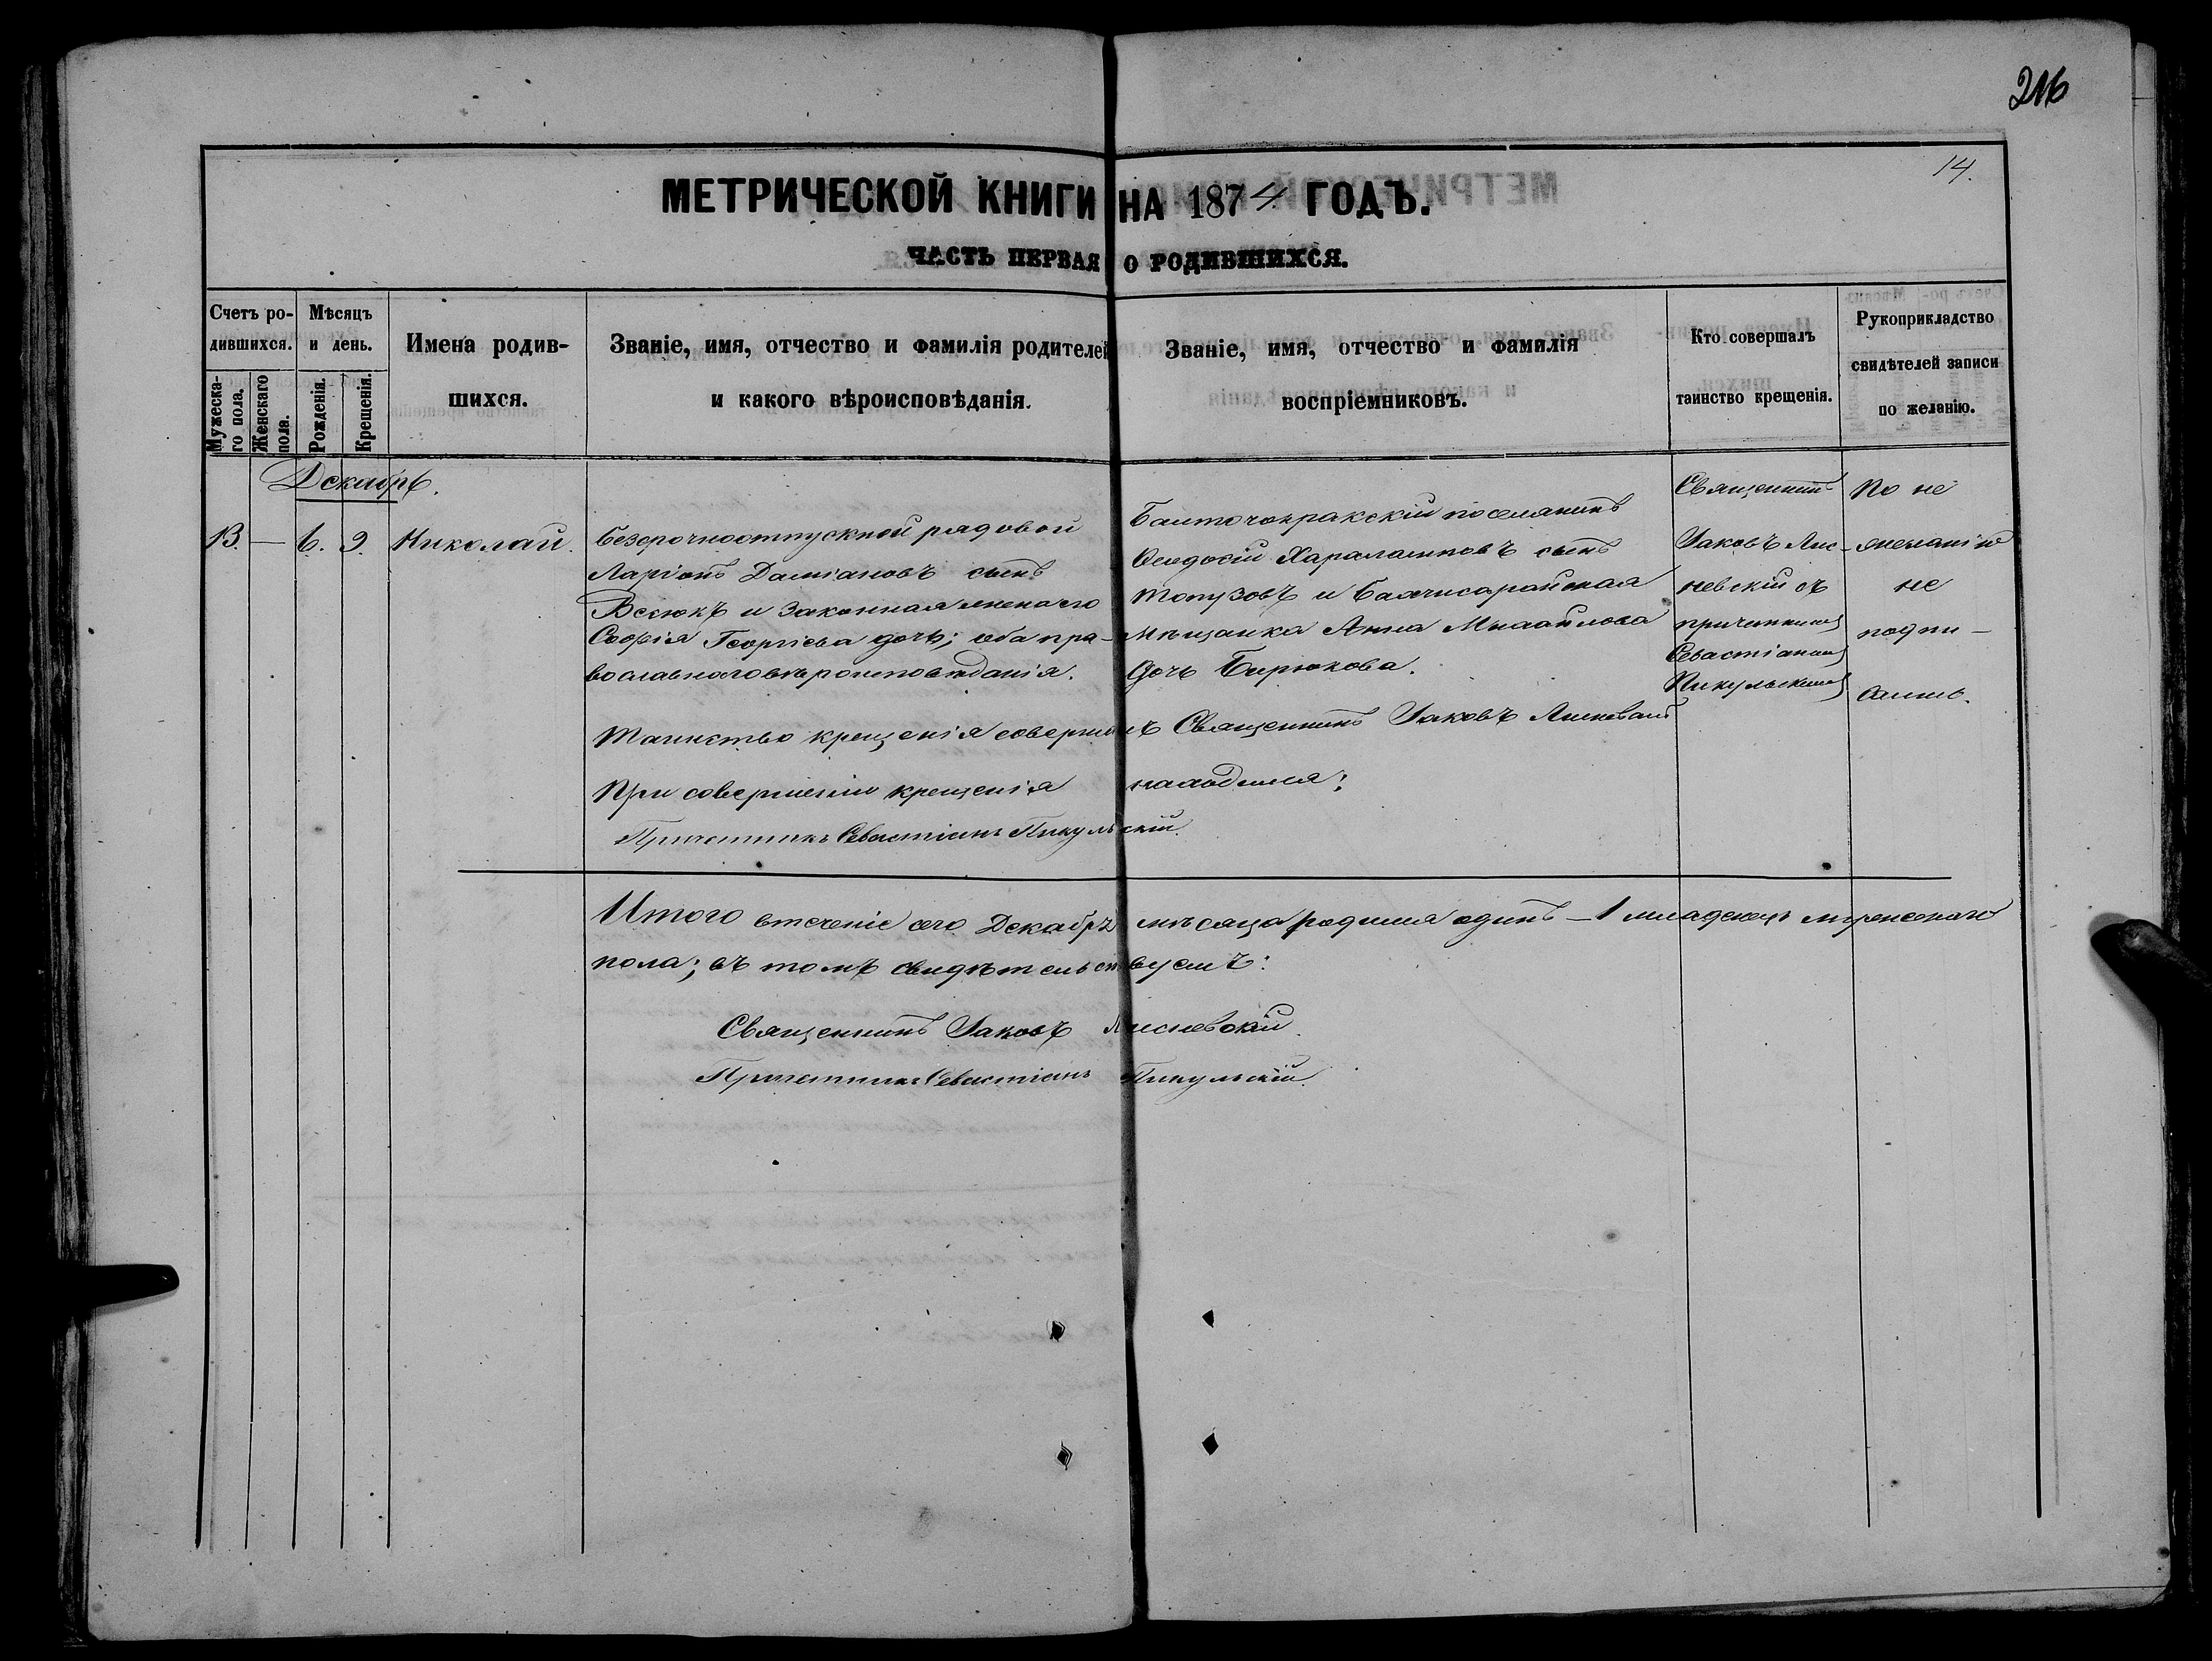 216
14.
МЕТРИЧЕСКОЙ КНИГИ НА 1874 ГОДЪ.
ЧАСТЬ ПЕРВАЯ О РОДИВШИХСЯ.
Счетъ ро-
дившихся.
Мужеска-
го пола.
Женскаго
пола.
Мѣсяцъ
и день.
Рожденія.
Крещенія.
Имена родив-
шихся.
Званіе, имя, отчество и фамилія родителей
и какого вѣроисповѣданія.
Званіе, имя, отчество и фамилія
воспріемниковъ.
Кто совершалъ
таинство крещенія.
Рукоприкладство
свидѣтелей записи
по желанію.
Декабрь.
13. — 6. 9. Николай.
безсрочноотпускной рядовой
Ларіонъ Даміановъ сынъ
Весюкъ и законная жена его
Софія Георгіева дочь; оба пра-
вославнаго вѣроисповѣданія.
поселянинъ
Ѳеодосій Харалампіовъ сынъ
Топузовъ и Бахчисарайская
мѣщанка Анна Михайлова
дочь Бирюкова.
Священникъ
Іаковъ Лис-
невскій съ
причетникомъ
Севастіаномъ
Пикульскимъ
По не
желанію
не
подпи-
сались.
Таинство крещенія совершилъ Священникъ Іаковъ Лисневскій
При совершеніи крещенія находился:
Причетникъ Севастіанъ Пикульскій.
Итого втеченіе сего Декабря мѣсяца родился одинъ — 1 младенецъ мужескаго
пола; въ томъ свидѣтельствуемъ:
Священникъ Іаковъ Лисневскій.
Причетникъ Севастіанъ Пикульскій.